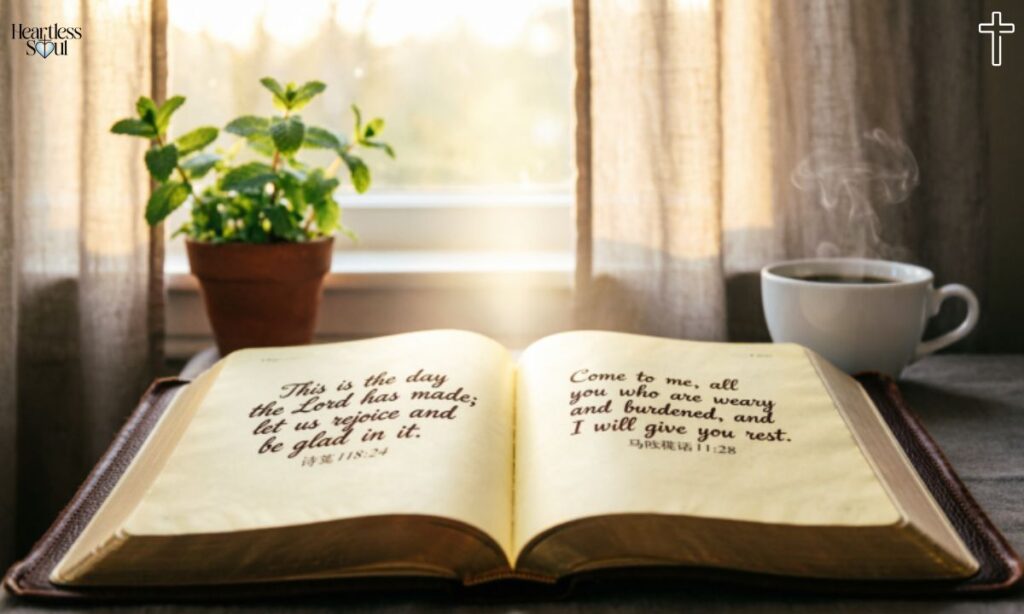 Heartless
Soul
This is the day
the Lord has made;
let us rejoice and
be glad in it.
118:24
Come to me, all
you who are weary
and burdened, and
I will give you rest.
11:28